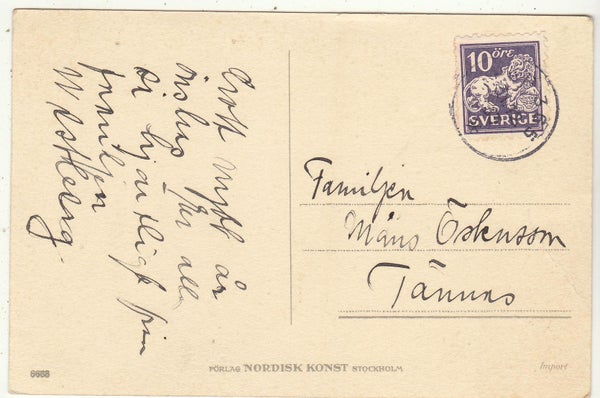 Gott nytt år
önskas Er alla
så hjärtligt från
familjen
Westberg.
10 ÖRE
SVERIGE
Familjen
Måns Öskensson
Tännäs
6688
FÖRLAG NORDISK KONST STOCKHOLM
Import